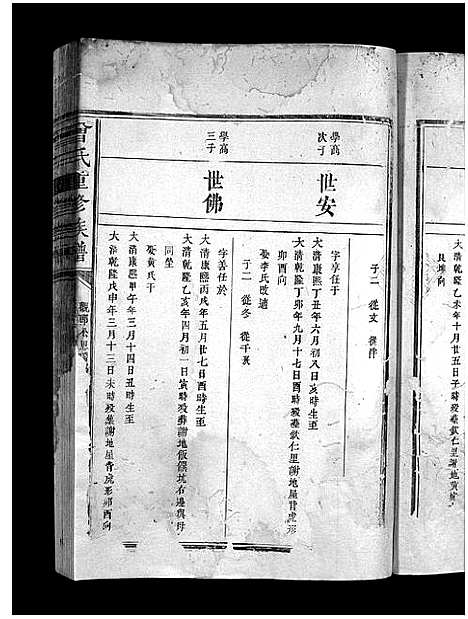 大清乾隆乙未年十月廿五日子時殁葬歙仁里謝地黃
艮坤向
子二 從文 從
學高
次子
世安
字享任于
大清康熙丁丑年六月初八日亥時生至
大清乾隆丁卯年九月十七日寅時殁葬歙仁里謝地屋背虎形
卯酉向
娶李氏改適
子二 從冬 從千
學高
三子
世佛
字善任於
大清康熙丙戌年五月廿七日酉時生至
大清乾隆乙亥年四月初一日寅時殁葬謝地飯籮坑右邊與母
同塋
娶黃氏于
大清康熙甲午年三月十四日丑時生至
大清乾隆戊申年三月十三日未時殁葬謝地屋背虎形卯酉向
曾氏重修族譜